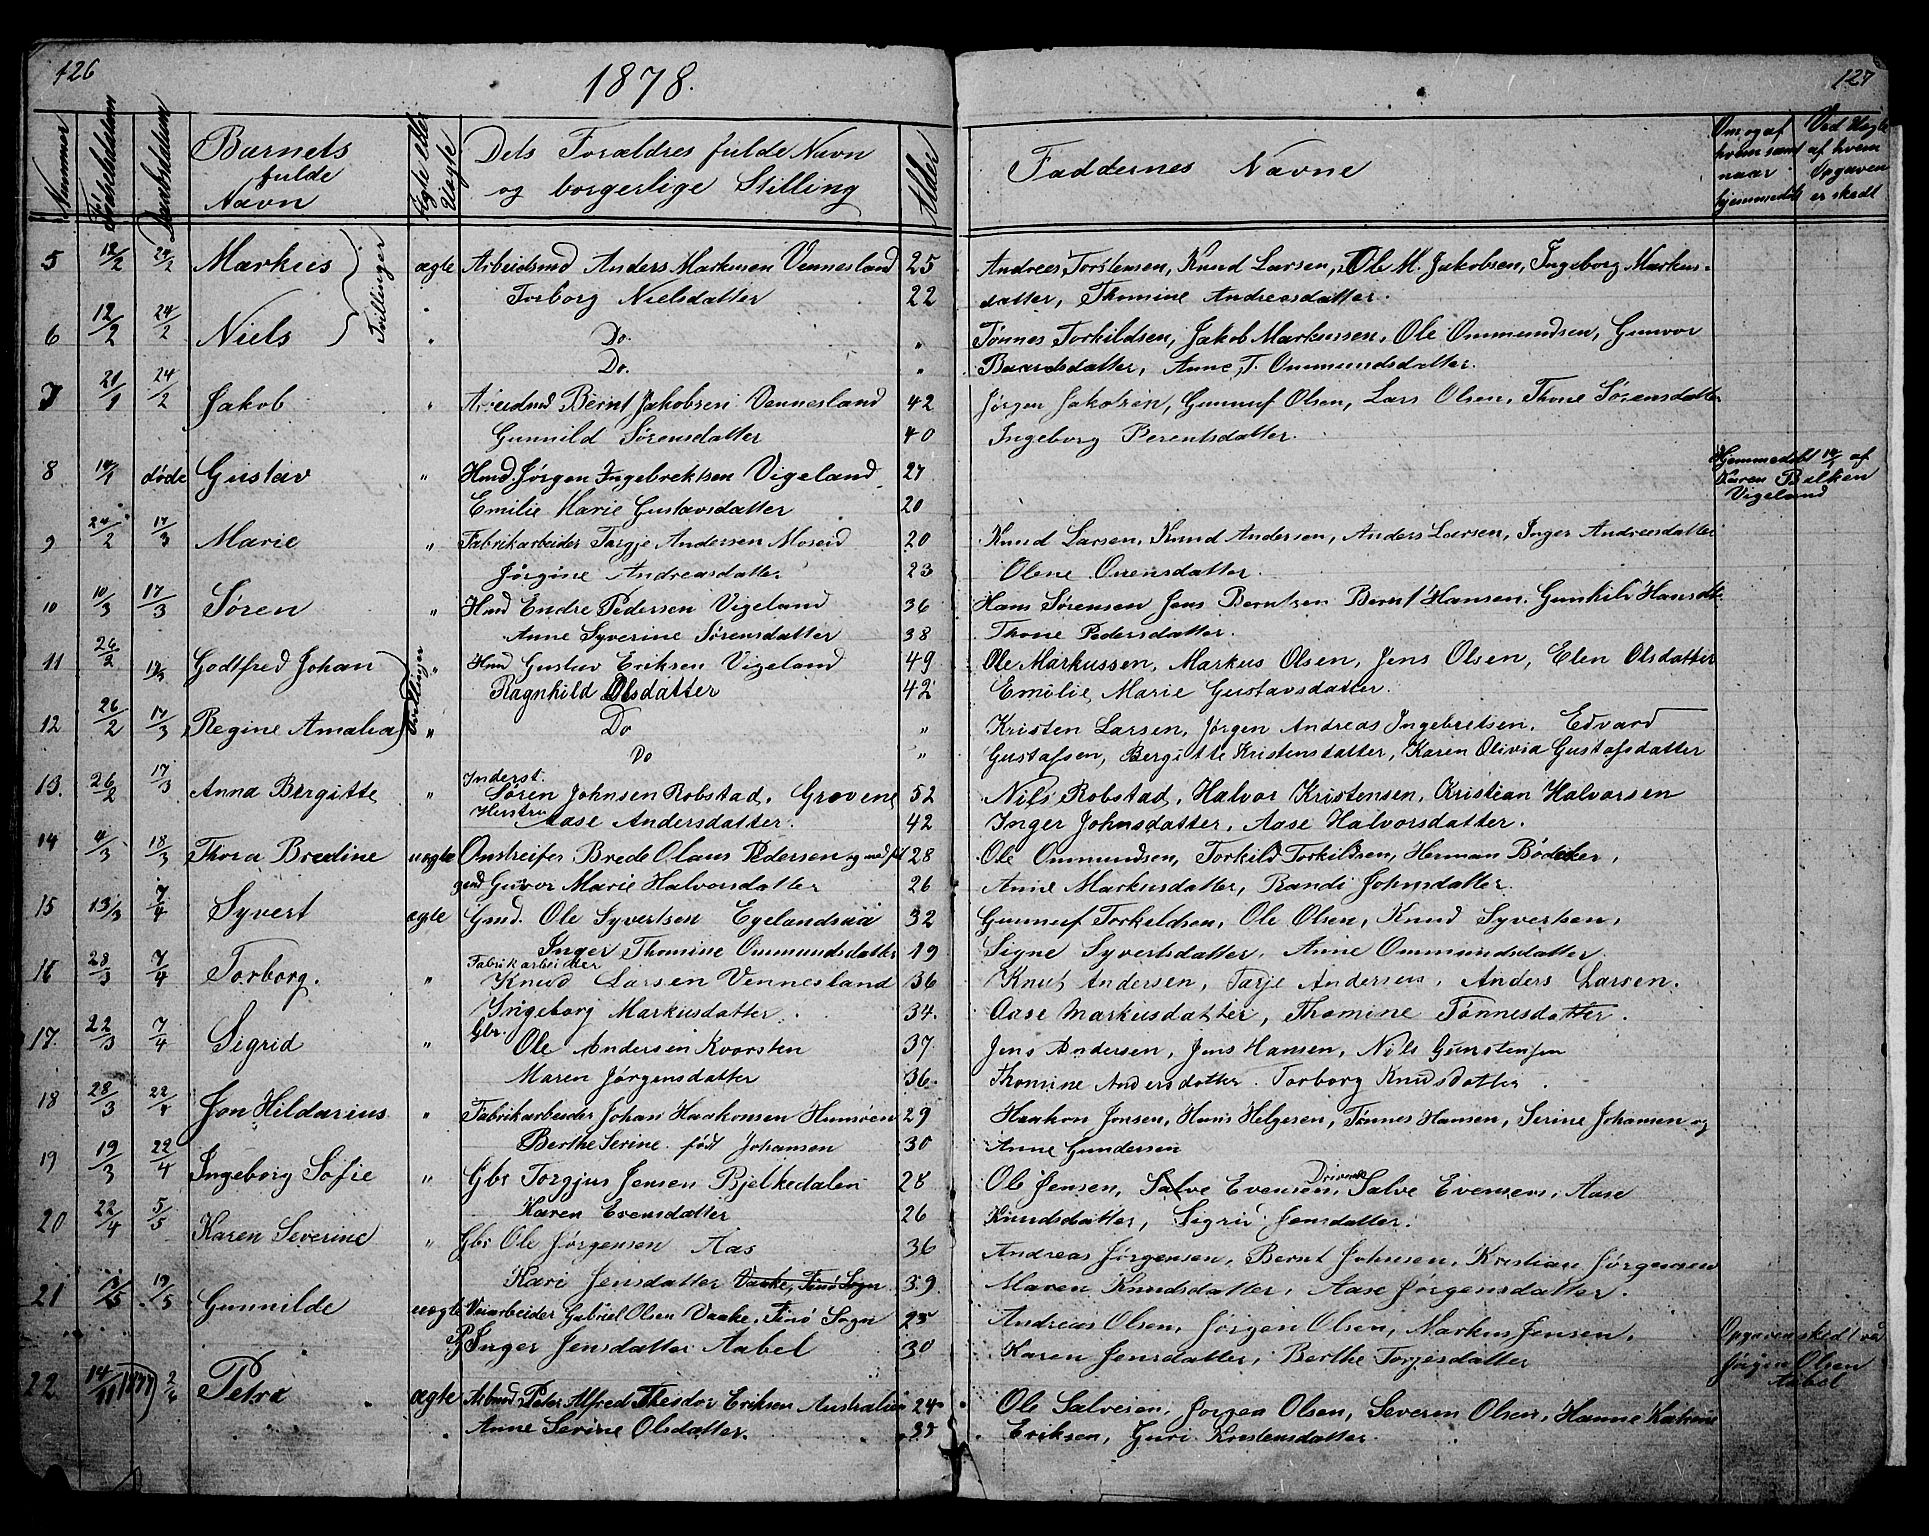 126
1878.
127
Nummer
Fødselsdatum
Daabsdatum
Barnets
fulde
Navn
Ægte eller
Uægte
Dets Forældres fulde Navn
og borgerlige Stilling
Alder
Faddernes Navne
Om og af
hvem samt
naar
hjemmedøbt
Ved Uægte
af hvem
Opgaven
er skedt
5 12/2 24/2 Markus Tvillinger ægte Arbeidsmd Anders Markusen Vennesland 25 Andreas Torstensen, Knud Larsen, Ole M. Jakobsen, Ingeborg Markus-
Torborg Nielsdatter 22 datter, Thomine Andreasdatter.
6 12/2 24/2 Niels " Do. " Tønnes Torkildsen, Jakob Markussen, Ole Ommundsen, Gunvor
Do. " Baardsdatter, Anne T. Ommundsdatter.
7 21/1 24/2 Jakob " Arbeidmd Bernt Jakobsen Vennesland 42 Jørgen Jakobsen, Gunnuf Olsen, Lars Olsen, Thone Sørensdatter
Gunnild Sørensdatter 40 Ingeborg Berentsdatter.
8 14/1 døde Gustav " Hmd. Jørgen Ingebrektsen Vigeland 27 Hjemmedøbt 14/1 af
Emilie Marie Gustavsdatter 20 Karen Balken
Vigeland
9 24/2 17/3 Marie " Fabrikarbeider Targje Andersen Moseid 20 Knud Larsen, Knud Andersen, Anders Larsen, Inger Andreasdatter
Jørgine Andreasdatter 23 Olene datter.
10 10/3 17/3 Søren " Hmd Endre Pedersen Vigeland 36 Hans Sørensen Jens Berntsen Bernt Hansen. Gunhild Hansdt.
Anne Syverine Sørensdatter 38 Thone Pedersdatter.
11 26/2 17/3 Godtfred Johan Tvillinger " Hmd Gustav Eriksen Vigeland 49 Ole Markussen, Markus Olsen, Jens Olsen, Elen Olsdatter
Ragnhild Olsdatter 42 Emilie Marie Gustavsdatter.
12 26/2 17/3 Regine Amalia " Do " Kristen Larsen, Jørgen Andreas Ingebretsen. Edvard
Do " Gustafsen, Bergitte Kristensdatter, Karen Olivia Gustafsdatter
13. 26/2 17/3 Anna Birgitte " Inderst.
Søren Johnsen Robstad, Grovene 52 Nils Robstad, Halvor Kristensen, Kristian Halvorsen
Hustru Aase Andersdatter. 42 Inger Johnsdatter, Aase Halvorsdatter.
14 4/3 18/3 Thora Bredine uægte Omstreifer Brede Olaus Pedersen og 28 Ole Ommundsen, Torkild Torkildsen, Herman Bødeker,
Guvor Marie Halvorsdatter 26 Anne Markusdatter, Randi Johnsdatter.
15 13/3 7/4 Syvert ægte Gmd. Ole Syvertsen Egelandsaa 32 Gunnuf Torkeldsen, Ole Olsen, Knud Syvertsen,
Inger Thomine Ommundsdatter 19 Signe Syvertsdatter, Anne Ommundsdatter.
16 28/3 7/4 Torborg. " Fabrikarbeider
Knud Larsen Vennesland 36 Knut Andersen, Tarje Andersen, Anders Larsen.
Ingeborg Markusdatter. 34. Aase Markusdatter, Thomine Tønnesdatter.
17. 22/3 7/4 Sigrid " Gbr.
Ole Andersen Kvorsten 37 Jens Andersen, Jens Hansen, Nils Gunstensen
Maren Jørgensdatter 36. Thomine Andersdatter. Torborg Knudsdatter.
18 28/3 22/4 Jon Hildarius " Fabrikarbeider Johan Haakonsen Hunsøen 29 Haakon Jonsen, Hans Helgesen, Tønnes Hansen, Serine Johansen og
Berthe Serine født Johansen 30 Anne Gundersen
19 19/3 22/4 Ingeborg Sofie " Gbr Torgjus Jensen Bjelkedalen 28 Ole Jensen, Salve Evensen, Drivenes Salve Evensen, Aase
Karen Evensdatter 26 Knudsdatter, Sigrid Jensdatter.
20 22/4 5/5 Karen Severine " Gbr Ole Jørgensen Aas 36 Andreas Jørgensen, Bernt Johnsen, Kristian Jørgensen
Kari Jensdatter Vaake, Finø Sogn 39. Maren Knudsdatter, Aase Jørgensdatter.
21 13/5 19/5 Gunnilde uægte Veiarbeider Gabriel Olsen Vaake, Finø Sogn 25 Andreas Olsen, Jørgen Olsen, Markus Jensen. Opgaven skedt
Pg Inger Jensdatter Aabel 30 Karen Jensdatter, Berthe Torjesdatter Jørgen Olsen
Aabel
22 14/11 1877) 2/6 Petra ægte Arbmd Peter Alfred Theodor Eriksen Australien 24 Ole Salvesen, Jørgen Olsen, Severin Olsen, Hanne Katrine
Anne Serine Olsdatter. Eriksen, Guri Kristensdatter